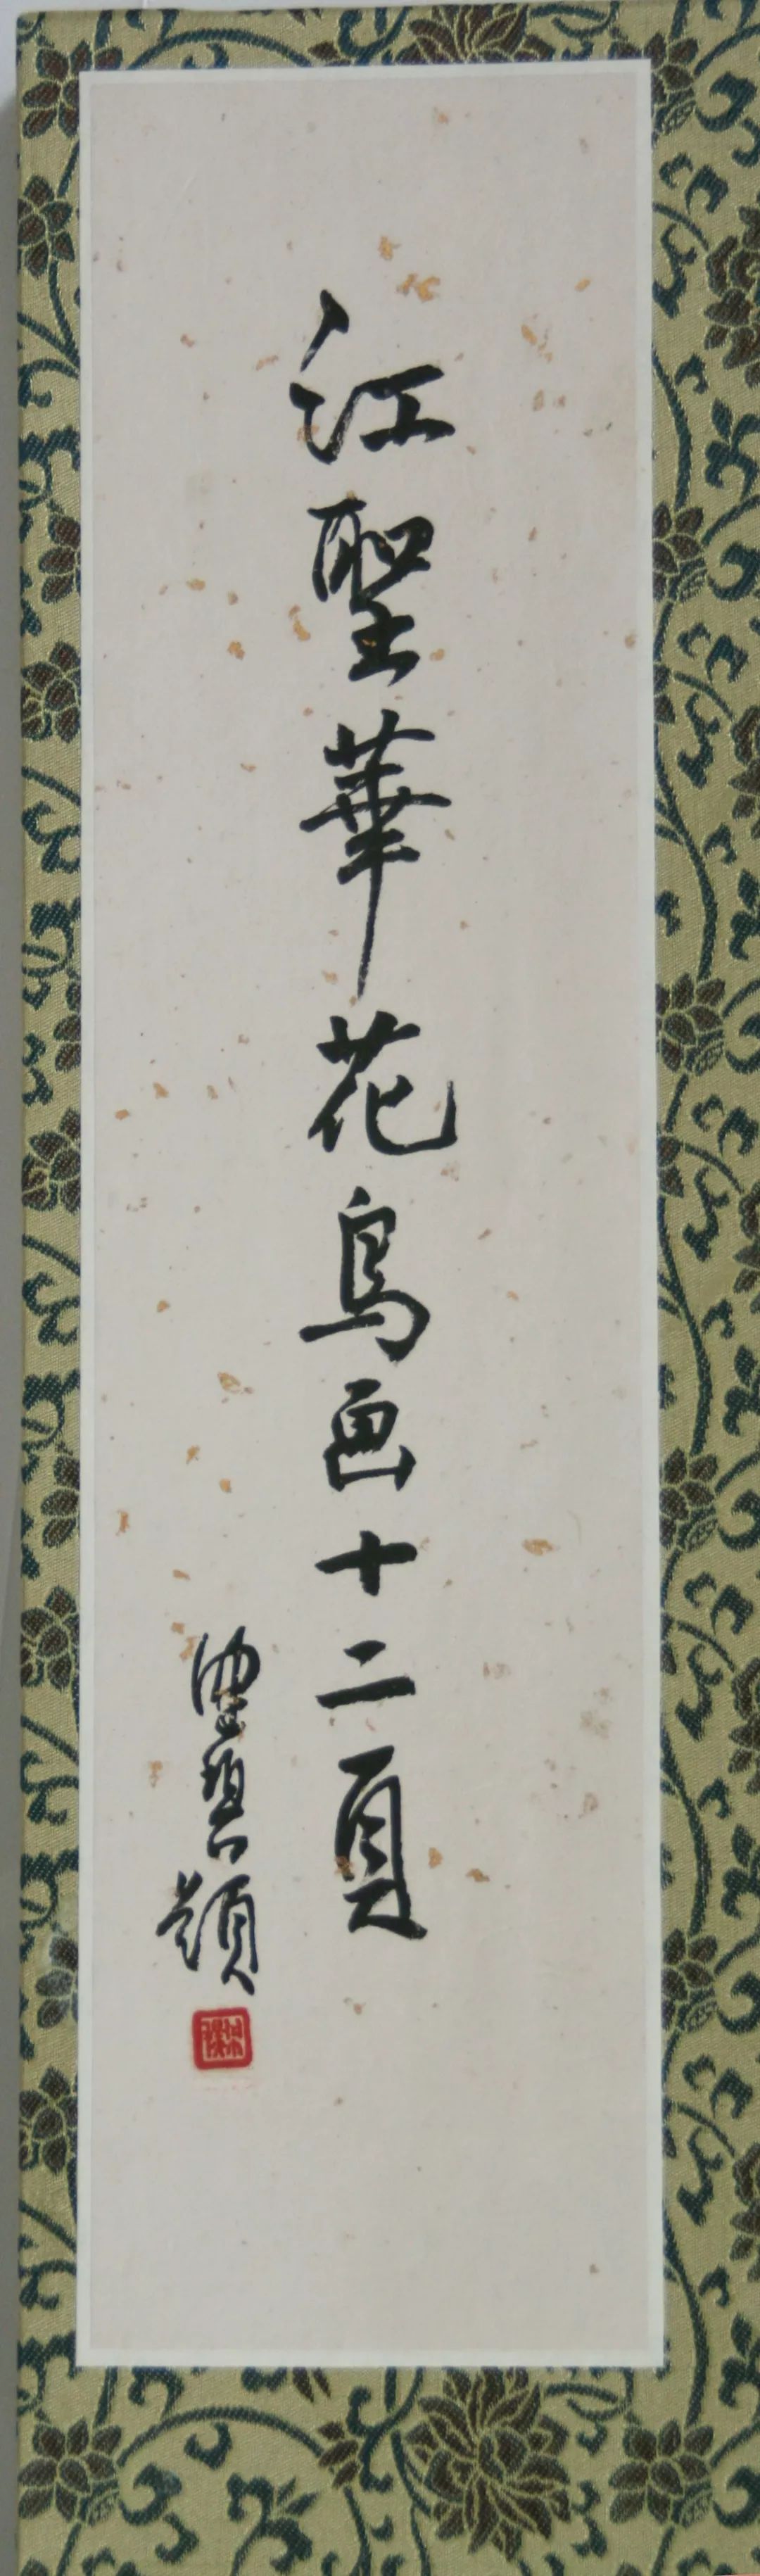 江聖華花鳥画十二頁
題